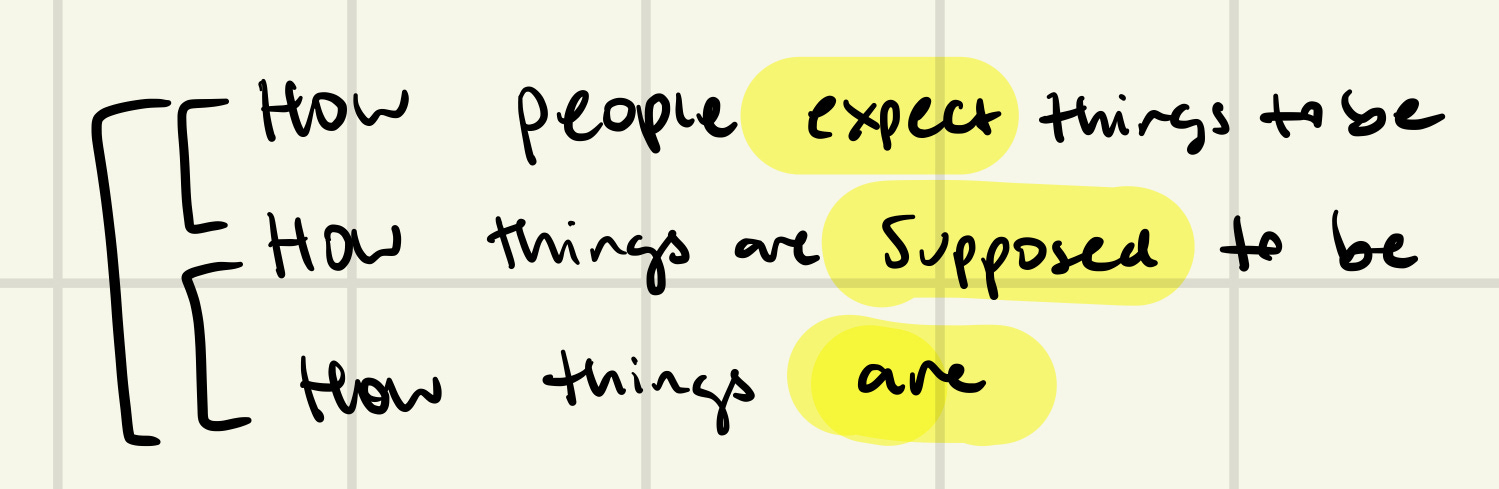 How people expect things to be
How things are supposed to be
How things are